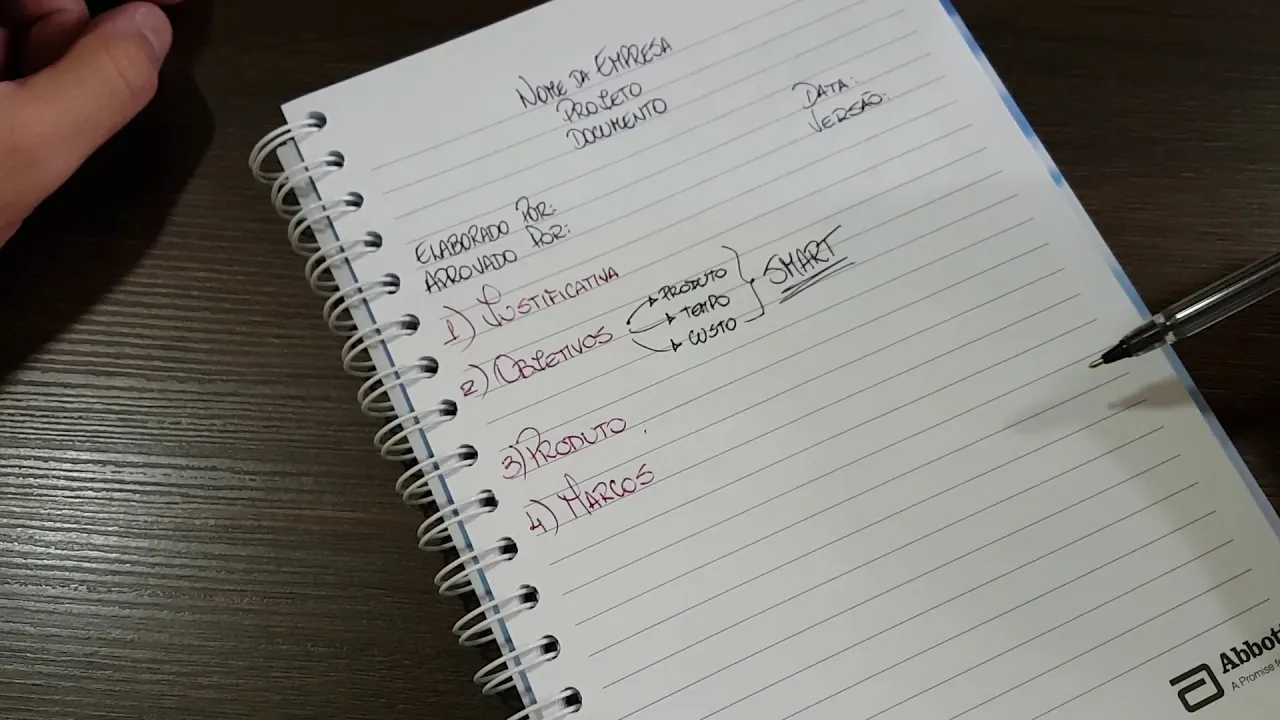 NOME DA EMPRESA
PROJETO
DOCUMENTO
DATA:
VERSÃO:
ELABORADO POR:
APROVADO POR:
1) JUSTIFICATIVA
2) OBJETIVOS
PRODUTO
TEMPO
CUSTO
SMART
3) PRODUTO
4) MARCOS
Abbott
A Promise fo